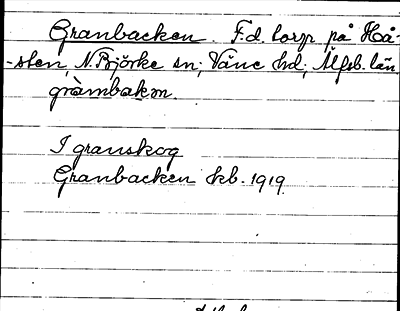 Granbacken. F.d. torp på Hå-
-sten, N. Björke sn; Väne hd; Älfsb. län.
gràmbakɷn.
I granskog
Granbacken kb. 1919